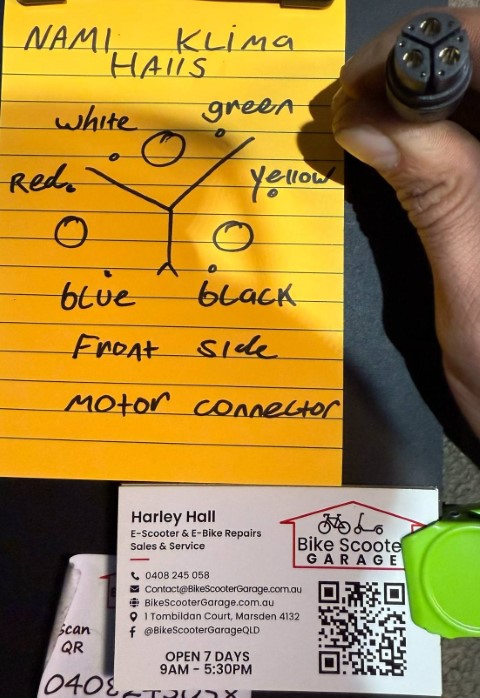 NAMI KLima
HAllS
white green
Red. yellow
blue black
Front side
Motor connector
Harley Hall
E-Scooter & E-Bike Repairs
Sales & Service
Bike Scoote
GARAGE
0408 245 058
Contact@BikeScooterGarage.com.au
BikeScooterGarage.com.au
1 Tombildan Court, Marsden 4132
@BikeScooterGarageQLD
OPEN 7 DAYS
9AM - 5:30PM
scan
QR